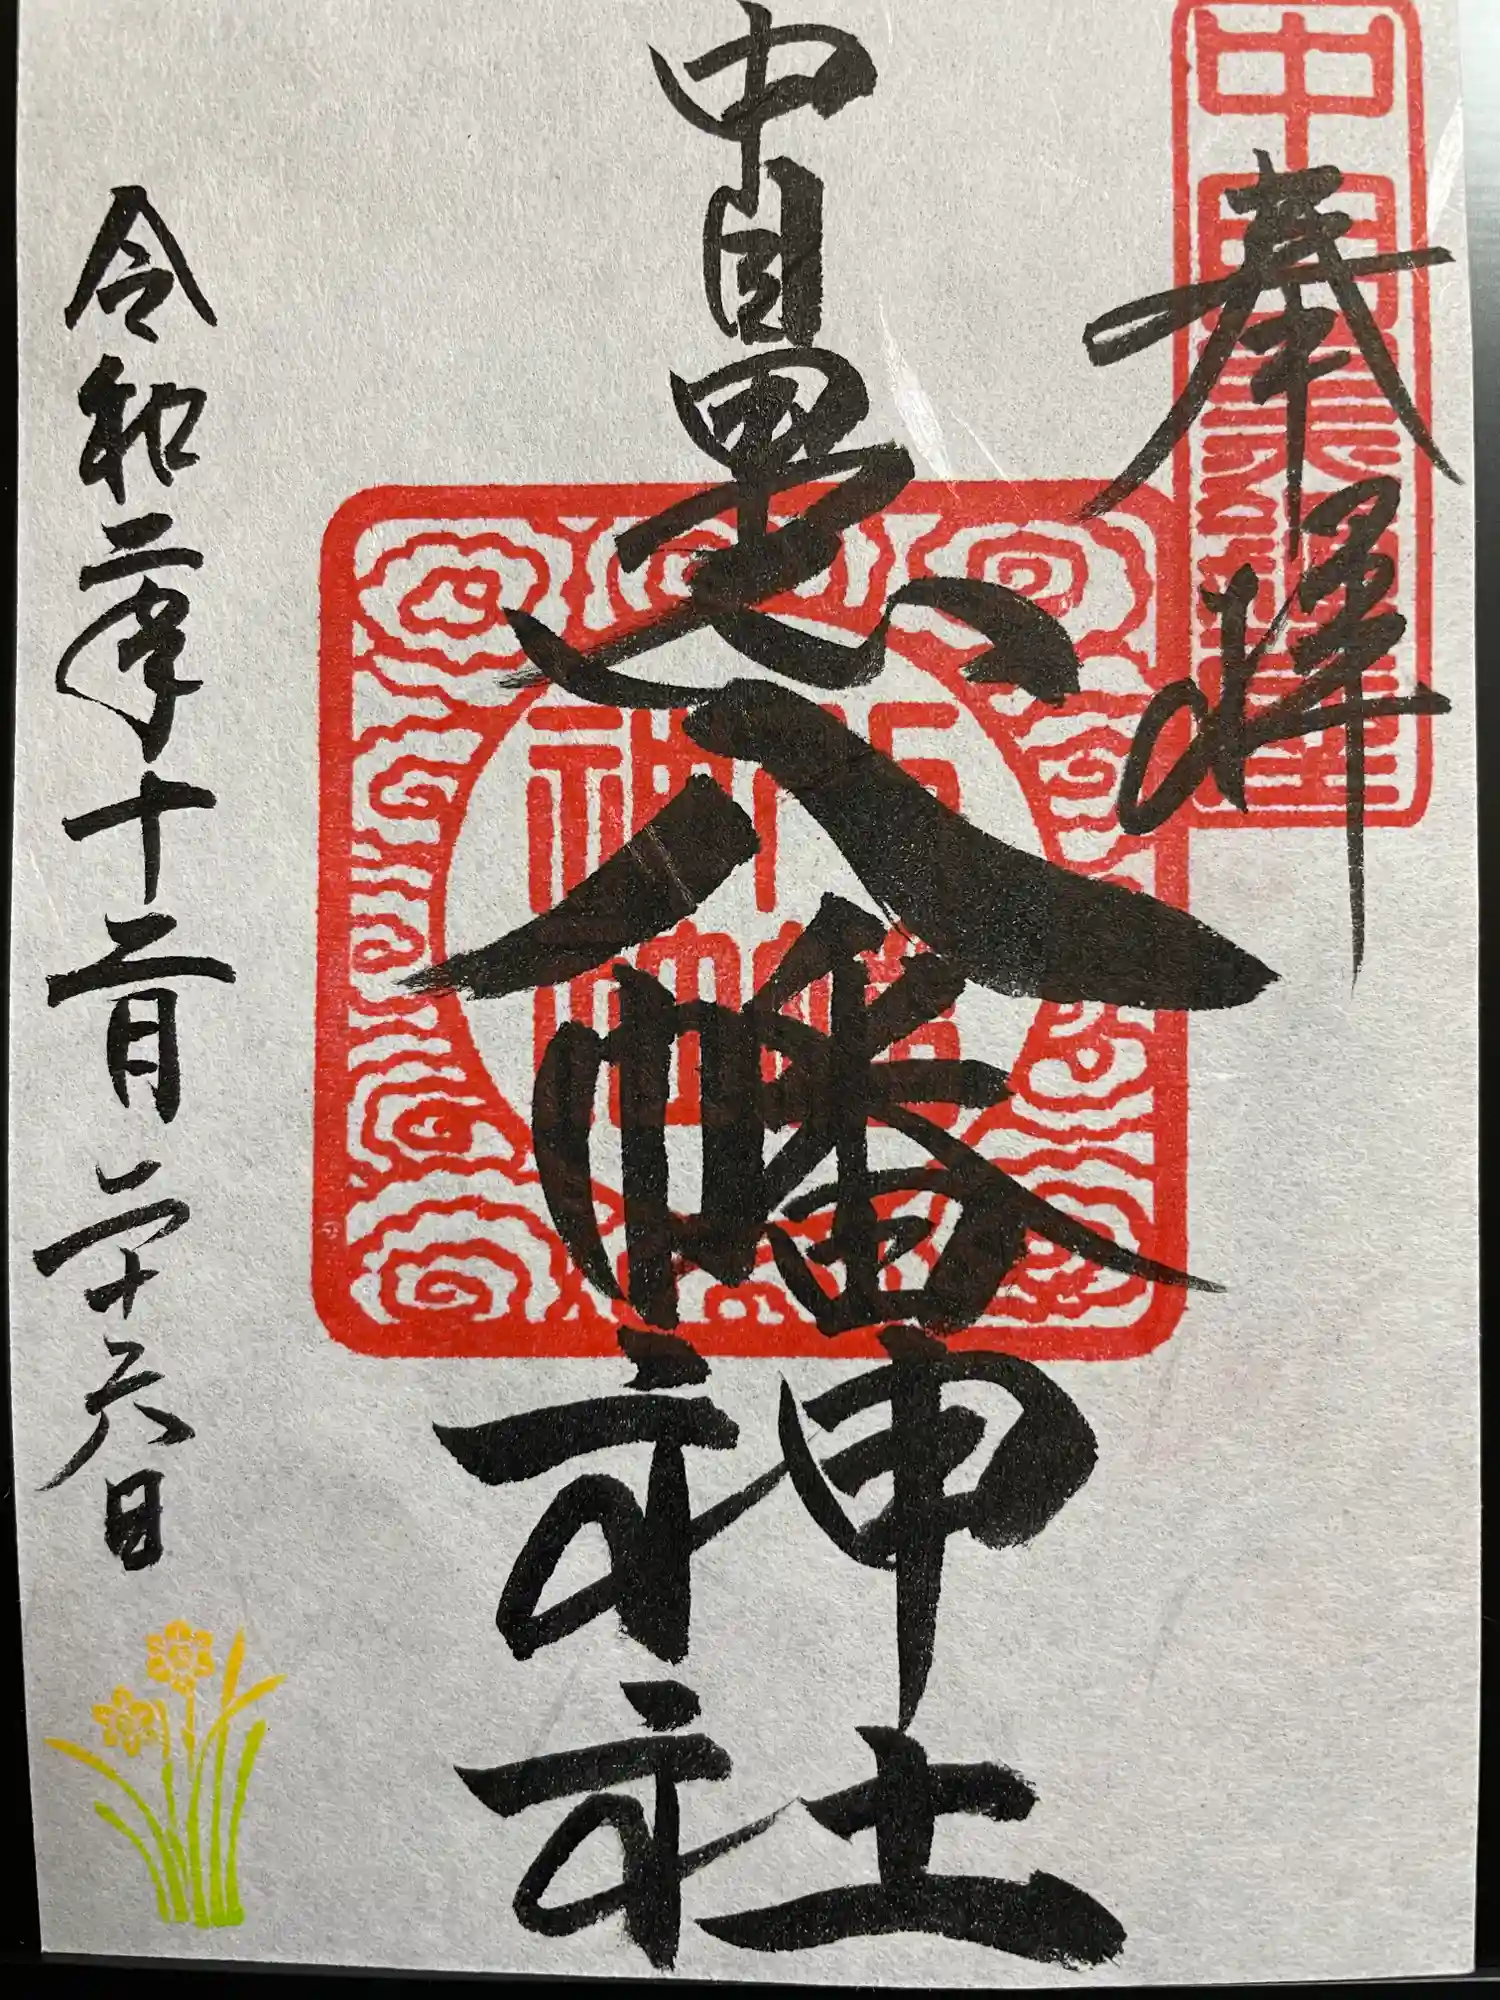 奉拝
中目黒八幡神社
令和二年十二月二十六日